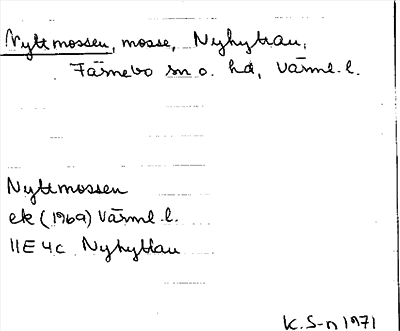 Nyttmossen, mosse, Nyhyttan,
Färnebo sn o. hd, Värml. l.
Nyttmossen
ek (1969) Värml. l.
11E 4c Nyhyttan
K. S-n 1971